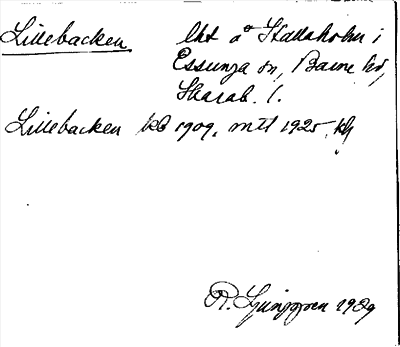 Lillebacken lht å Stallaholm i
Essunga sn, Barne hd,
Skarab. l.
Lillebacken kb 1909, mtl 1925 kb
R. Ljunggren 1929